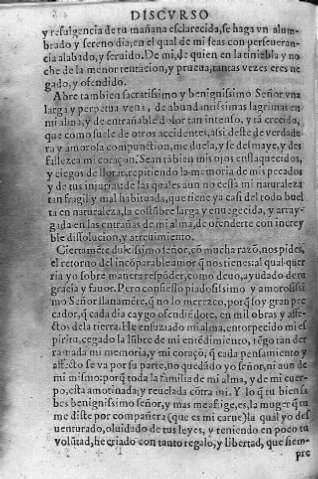 DISCVRSO
y refulgencia de tu mañana esclarecida, se haga vn alum-
brado y sereno dia, en el qual de mi seas con perseueran-
cia alabado, y seruido. De mi, de quien en la tiniebla y no
che de la menor tentacion, y prueua, tantas vezes eres ne
gado, y ofendido.
Abre tambien sacratissimo y benignissimo Señor vna
larga y perpetua vena, de abundantissimas lagrimas en
mi alma, y de entrañable dolor tan intenso, y tã crecido,
que como suele de otros accidentes, assi deste de verdade
ra y amorosa compunction, me duela, y se desmaye, y des
fallezca mi coraçon. Sean tãbien mis ojos enflaquecidos,
y ciegos de llorar, repitiendo la memoria de mis pecados
y de tus injurias: de las quales aun no cessa mi naturaleza
tan fragil y mal habituada, que tiene ya casi del todo buel
ta en naturaleza, la costũbre larga y enuegecida, y array-
gada en las entrañas de mi alma, de ofenderte con increy
ble dissolucion, y atreuimiento.
Ciertamẽte dulcissimo señor, cõ mucha razõ, nos pides,
el retorno del incõparable amor q̃ nos tienes: al qual quer
ria yo sobre manera respõder, como deuo, ayudado de tu
gracia y fauor. Pero confiesso piadosissimo y amorosissi
mo Señor llanamẽte, q̃ no lo merezco, porq̃ soy gran pre
cador, q̃ cada dia cay go ofendiẽdote, en mil obras y affe-
ctos de la tierra. He ensuziado mi alma, entorpecido mi es
piritu, cegado la lũbre de mi entẽdimiẽto, tẽgo tan der
ramada mi memoria, y mi coraçõ, q̃ cada pensamiento y
affecto se va por su parte, no quedãdo yo señor, ni aun de
mi mismo: porq̃ toda la familia de mi alma, y de mi cuer-
po, esta amotinada, y reuelada cõtra mi. Y lo q̃ tu bien sa
bes benignissimo señor, y mas me aflige, es, la muger q̃ tu
me diste por compañera (que es mi carne) la qual yo des
uenturado, oluidado de tus leyes, y teniendo en poco tu
volũtad, he criado con tanto regalo, y libertad, que siem-
pre